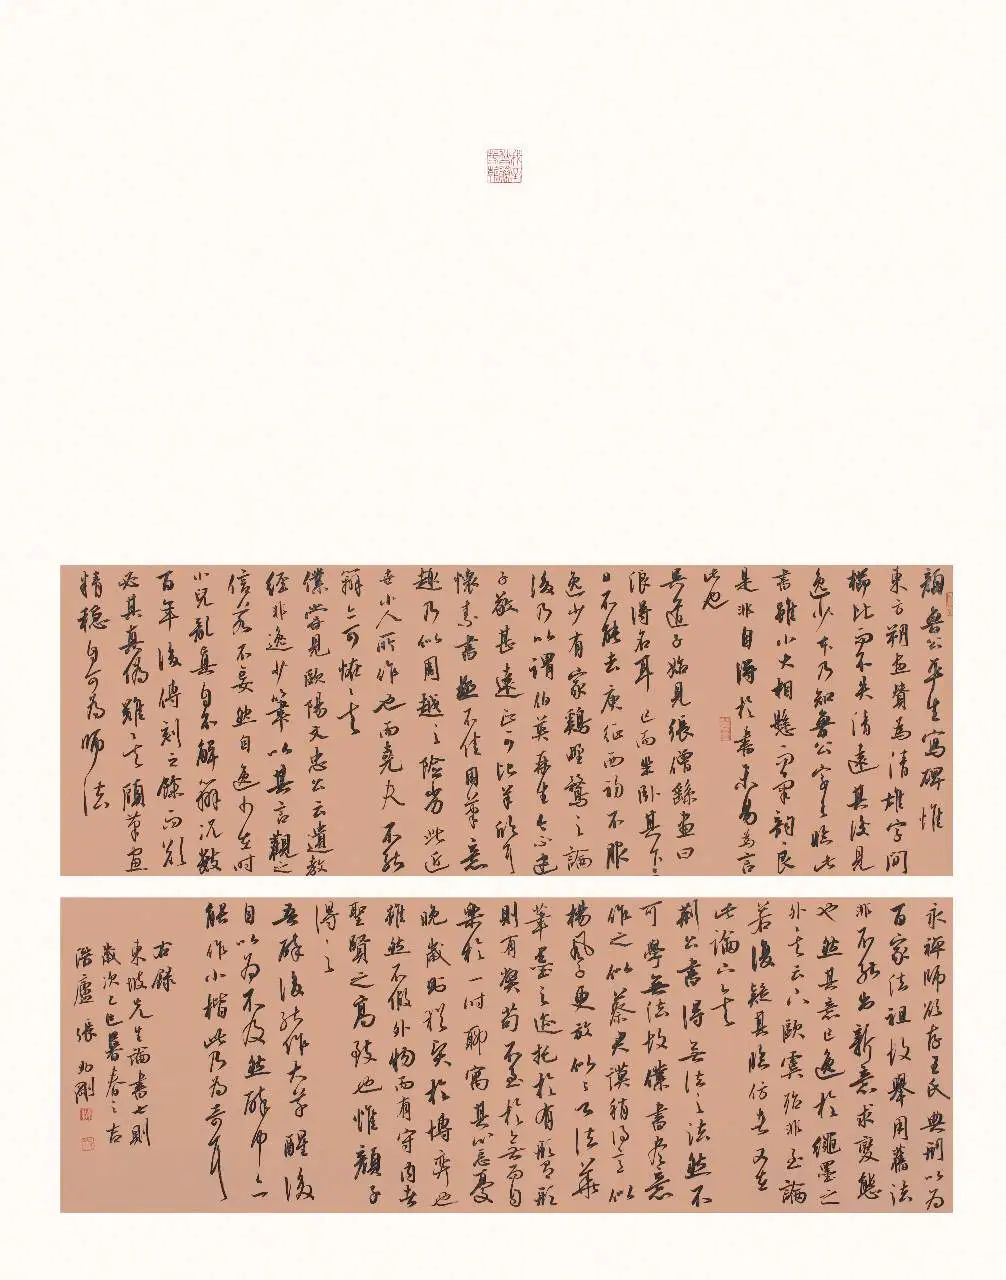 顏魯公平生寫碑惟
東方朔畫贊為清雄字間
櫛比而不失清遠其後見
逸少本乃知魯公字字臨此
書雖小大相懸而氣韻良
是非自得於書未易為言
此也
吳道子始見張僧繇畫曰
浪得名耳已而坐臥其下三
日不能去庾征西初不服
逸少有家雞野鶩之論
後乃以謂伯英再生今不逮
子敬甚遠正可比羊欣耳
懷素書極不佳用筆意
趣乃似周越之險劣此近
世小人所作也而堯夫不能
辯亦可怪之矣
僕嘗見歐陽文忠公云遺教
經非逸少筆以其言觀之
信若不妄然自逸少在時
小兒亂真自不解辯況數
百年後傳刻之餘而欲
必其真偽難之矣顧筆畫
精穩自可為師法
永禪師欲存王氏典刑以為
百家法祖故舉用舊法
非不能出新意求變態
也然其意已逸於繩墨之
外矣云下歐虞殆非至論
若復疑其臨仿者又在
此論下矣
荊公書得無法之法然不
可學無法故僕書盡意
作之似蔡君謨稍得意似
楊風子更放似言法華
筆墨之迹托於有形有形
則有弊苟不至於無而自
樂於一時聊寓其心忘憂
晚歲則猶賢於博弈也
雖然不假外物而有守於內者
聖賢之高致也惟顏子
得之
吾醉後能作大草醒後
自以為不及然醉中亦
能作小楷此乃為奇耳
右錄
東坡先生論書七則
歲次乙巳暮春之吉
浩廬張兆剛